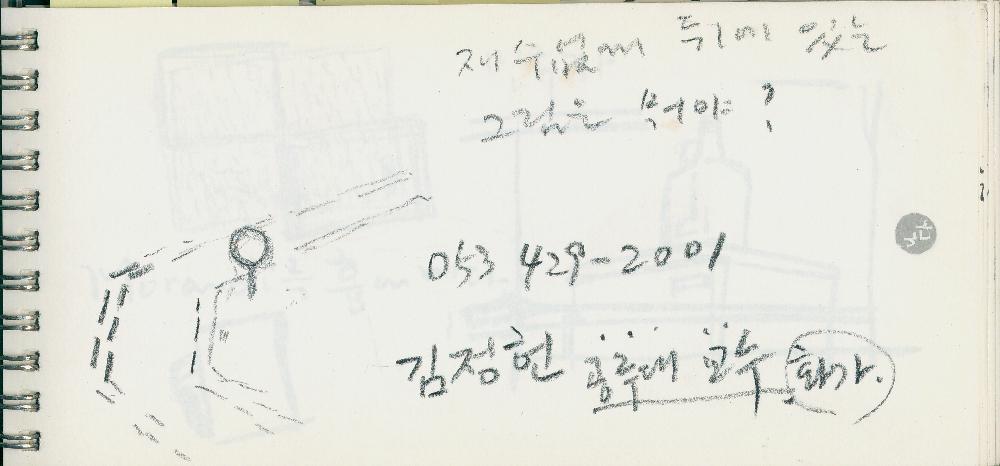 재수없게 뒤에 있는
그림은 뭐야?
053 429-2001
김정헌 공주대 교수 화가.